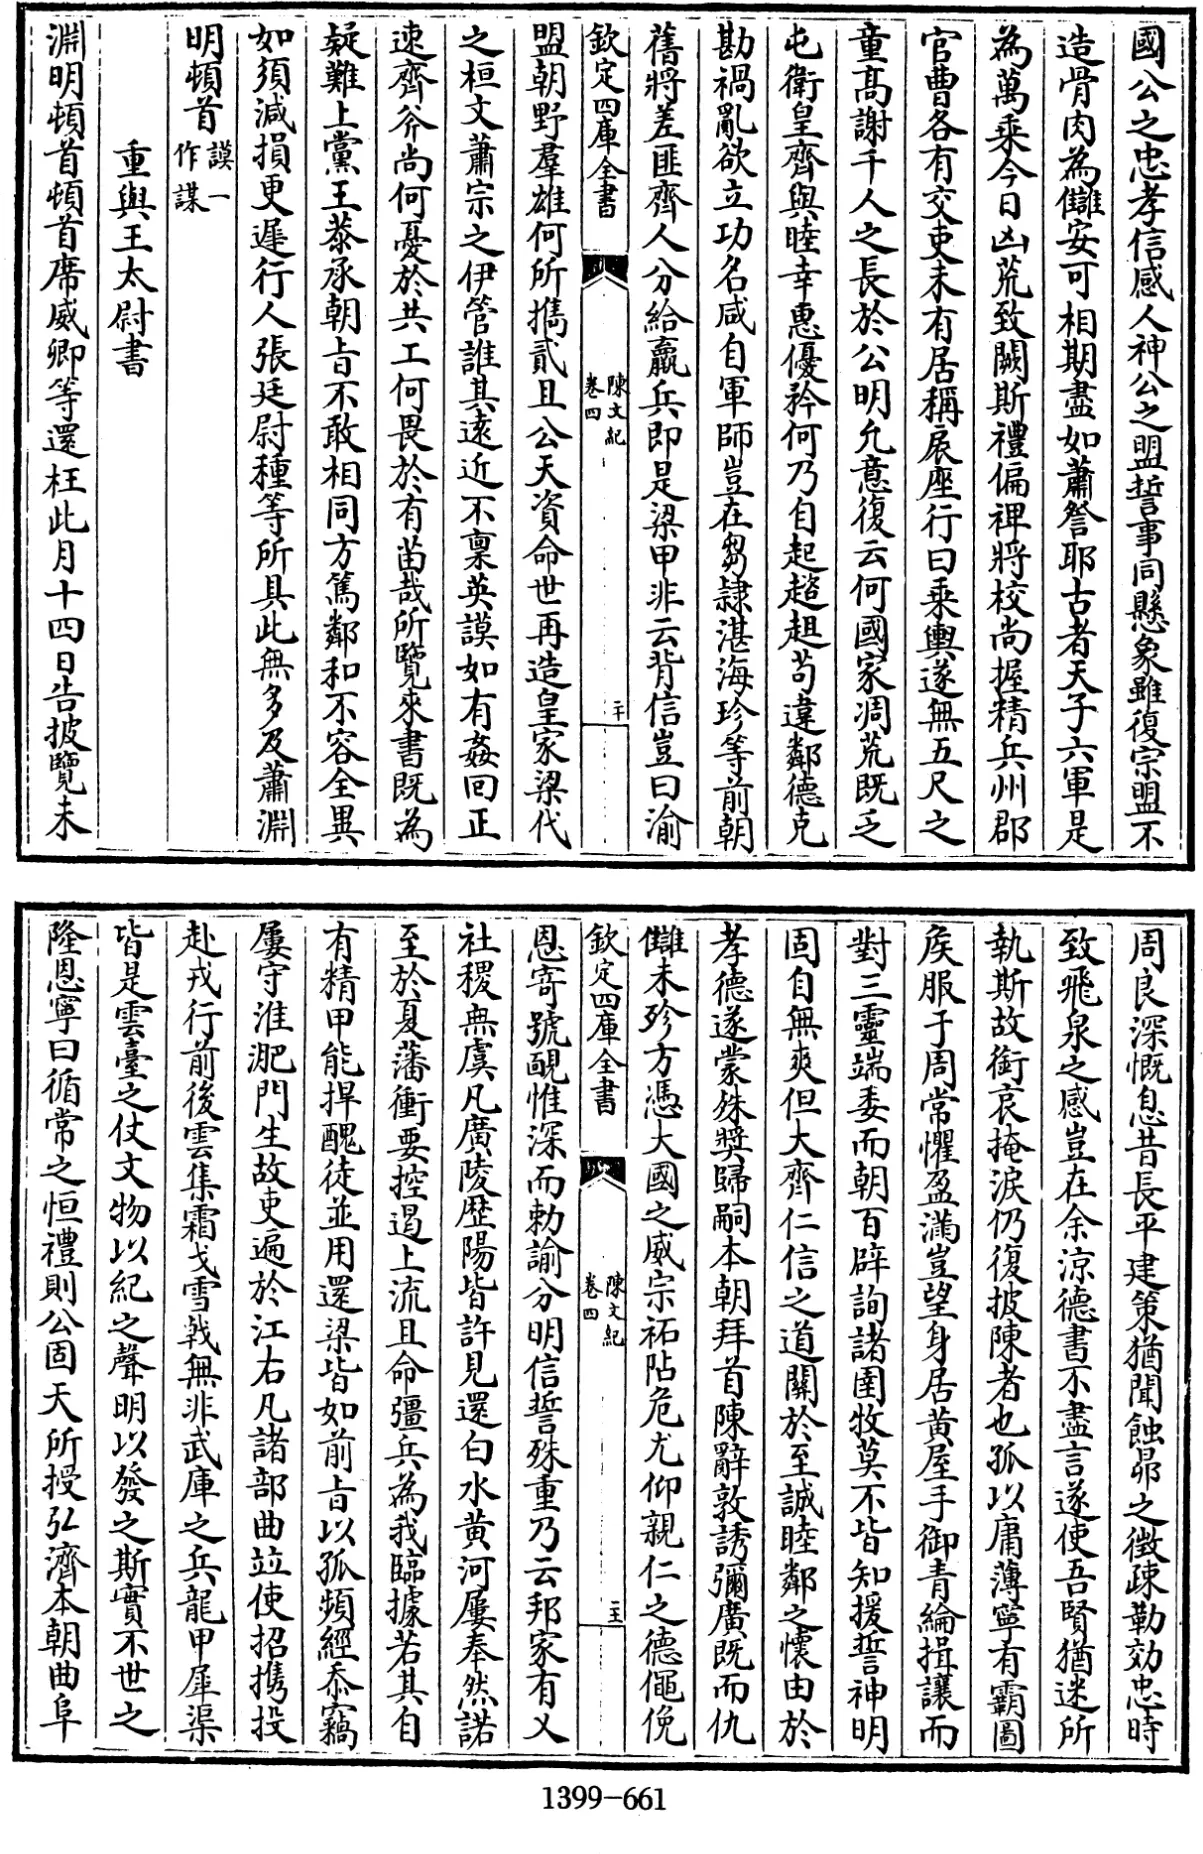 國公之忠孝信感人神公之盟誓事同懸象雖復宗盟不
造骨肉為讎安可相期盡如蕭詧耶古者天子六軍是
為萬乘今日凶荒致闕斯禮偏裨將校尚握精兵州郡
官曹各有交吏未有居稱扆座行曰乘輿遂無五尺之
童高謝千人之長於公明允意復云何國家凋荒既乏
屯衛皇齊與睦幸惠優矜何乃自起趦趄茍違鄰德克
勘禍亂欲立功名咸自軍師豈在芻隷湛海珍等前朝
舊將差匪齊人分給羸兵即是梁甲非云背信豈曰渝
欽定四庫全書
陳文紀
卷四
二十
盟朝野羣雄何所攜貳且公天資命世再造皇家梁代
之桓文蕭宗之伊管誰其遠近不稟英謨如有姦回正
速齊斧尚何憂於共工何畏於有苗哉所覽來書既為
疑難上黨王恭承朝旨不敢相同方篤鄰和不容全異
如須減損更遲行人張廷尉種等所具此無多及蕭淵
明頓首謨一作謀
重與王太尉書
淵明頓首頓首席威卿等還枉此月十四日告披覽未
周良深慨息昔長平建策猶聞蝕昴之徵疎勒効忠時
致飛泉之感豈在余涼德書不盡言遂使吾賢猶迷所
執斯故銜哀掩淚仍復披陳者也孤以庸薄寧有霸圖
矦服于周常懼盈滿豈望身居黄屋手御青綸揖讓而
對三靈端委而朝百辟詢諸圉牧莫不皆知援誓神明
固自無爽但大齊仁信之道關於至誠睦鄰之懷由於
孝德遂蒙殊奬歸嗣本朝拜首陳辭敦誘彌廣既而仇
讎未殄方憑大國之威宗祏阽危尤仰親仁之德僶俛
欽定四庫全書
陳文紀
卷四
二十一
恩寄號靦惟深而勅諭分明信誓殊重乃云邦家有乂
社稷無虞凡廣陵歴陽皆許見還白水黄河屢奉然諾
至於夏藩衝要控遏上流且命彊兵為我臨據若其自
有精甲能捍醜徒並用還梁皆如前旨以孤頻經忝竊
屢守淮淝門生故吏遍於江右凡諸部曲竝使招携投
赴戎行前後雲集霜戈雪戟無非武庫之兵龍甲犀渠
皆是雲臺之仗文物以紀之聲明以發之斯實不世之
隆恩寧曰循常之恒禮則公固天所授弘濟本朝曲阜
1399-661